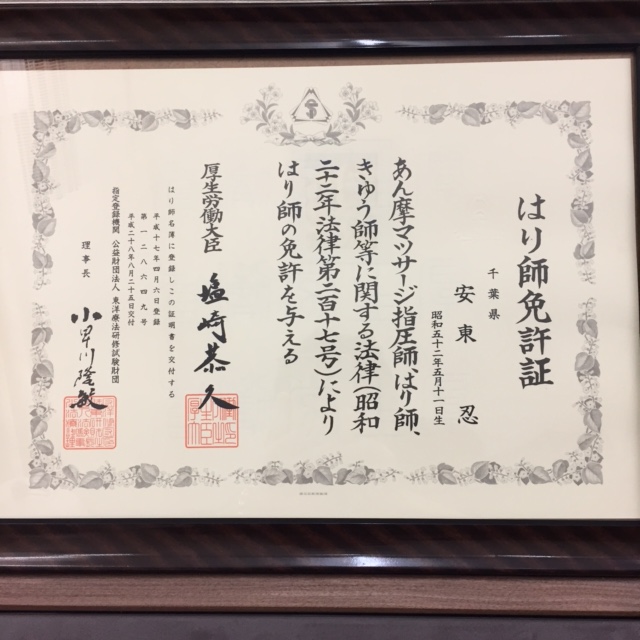 はり師免許証
千葉県
安東忍
昭和五十二年五月十一日生
あん摩マツサージ指圧師、はり師、
きゆう師等に関する法律(昭和
二十二年法律第二百十七号)により
はり師の免許を与える
厚生労働大臣 塩崎恭久
はり師名簿に登録しこの証明書を交付する
平成十七年四月六日登録
第一二八六四九号
平成二十八年八月二十五日交付
指定登録機関 公益財団法人 東洋療法研修試験財団
理事長 小早川隆敏